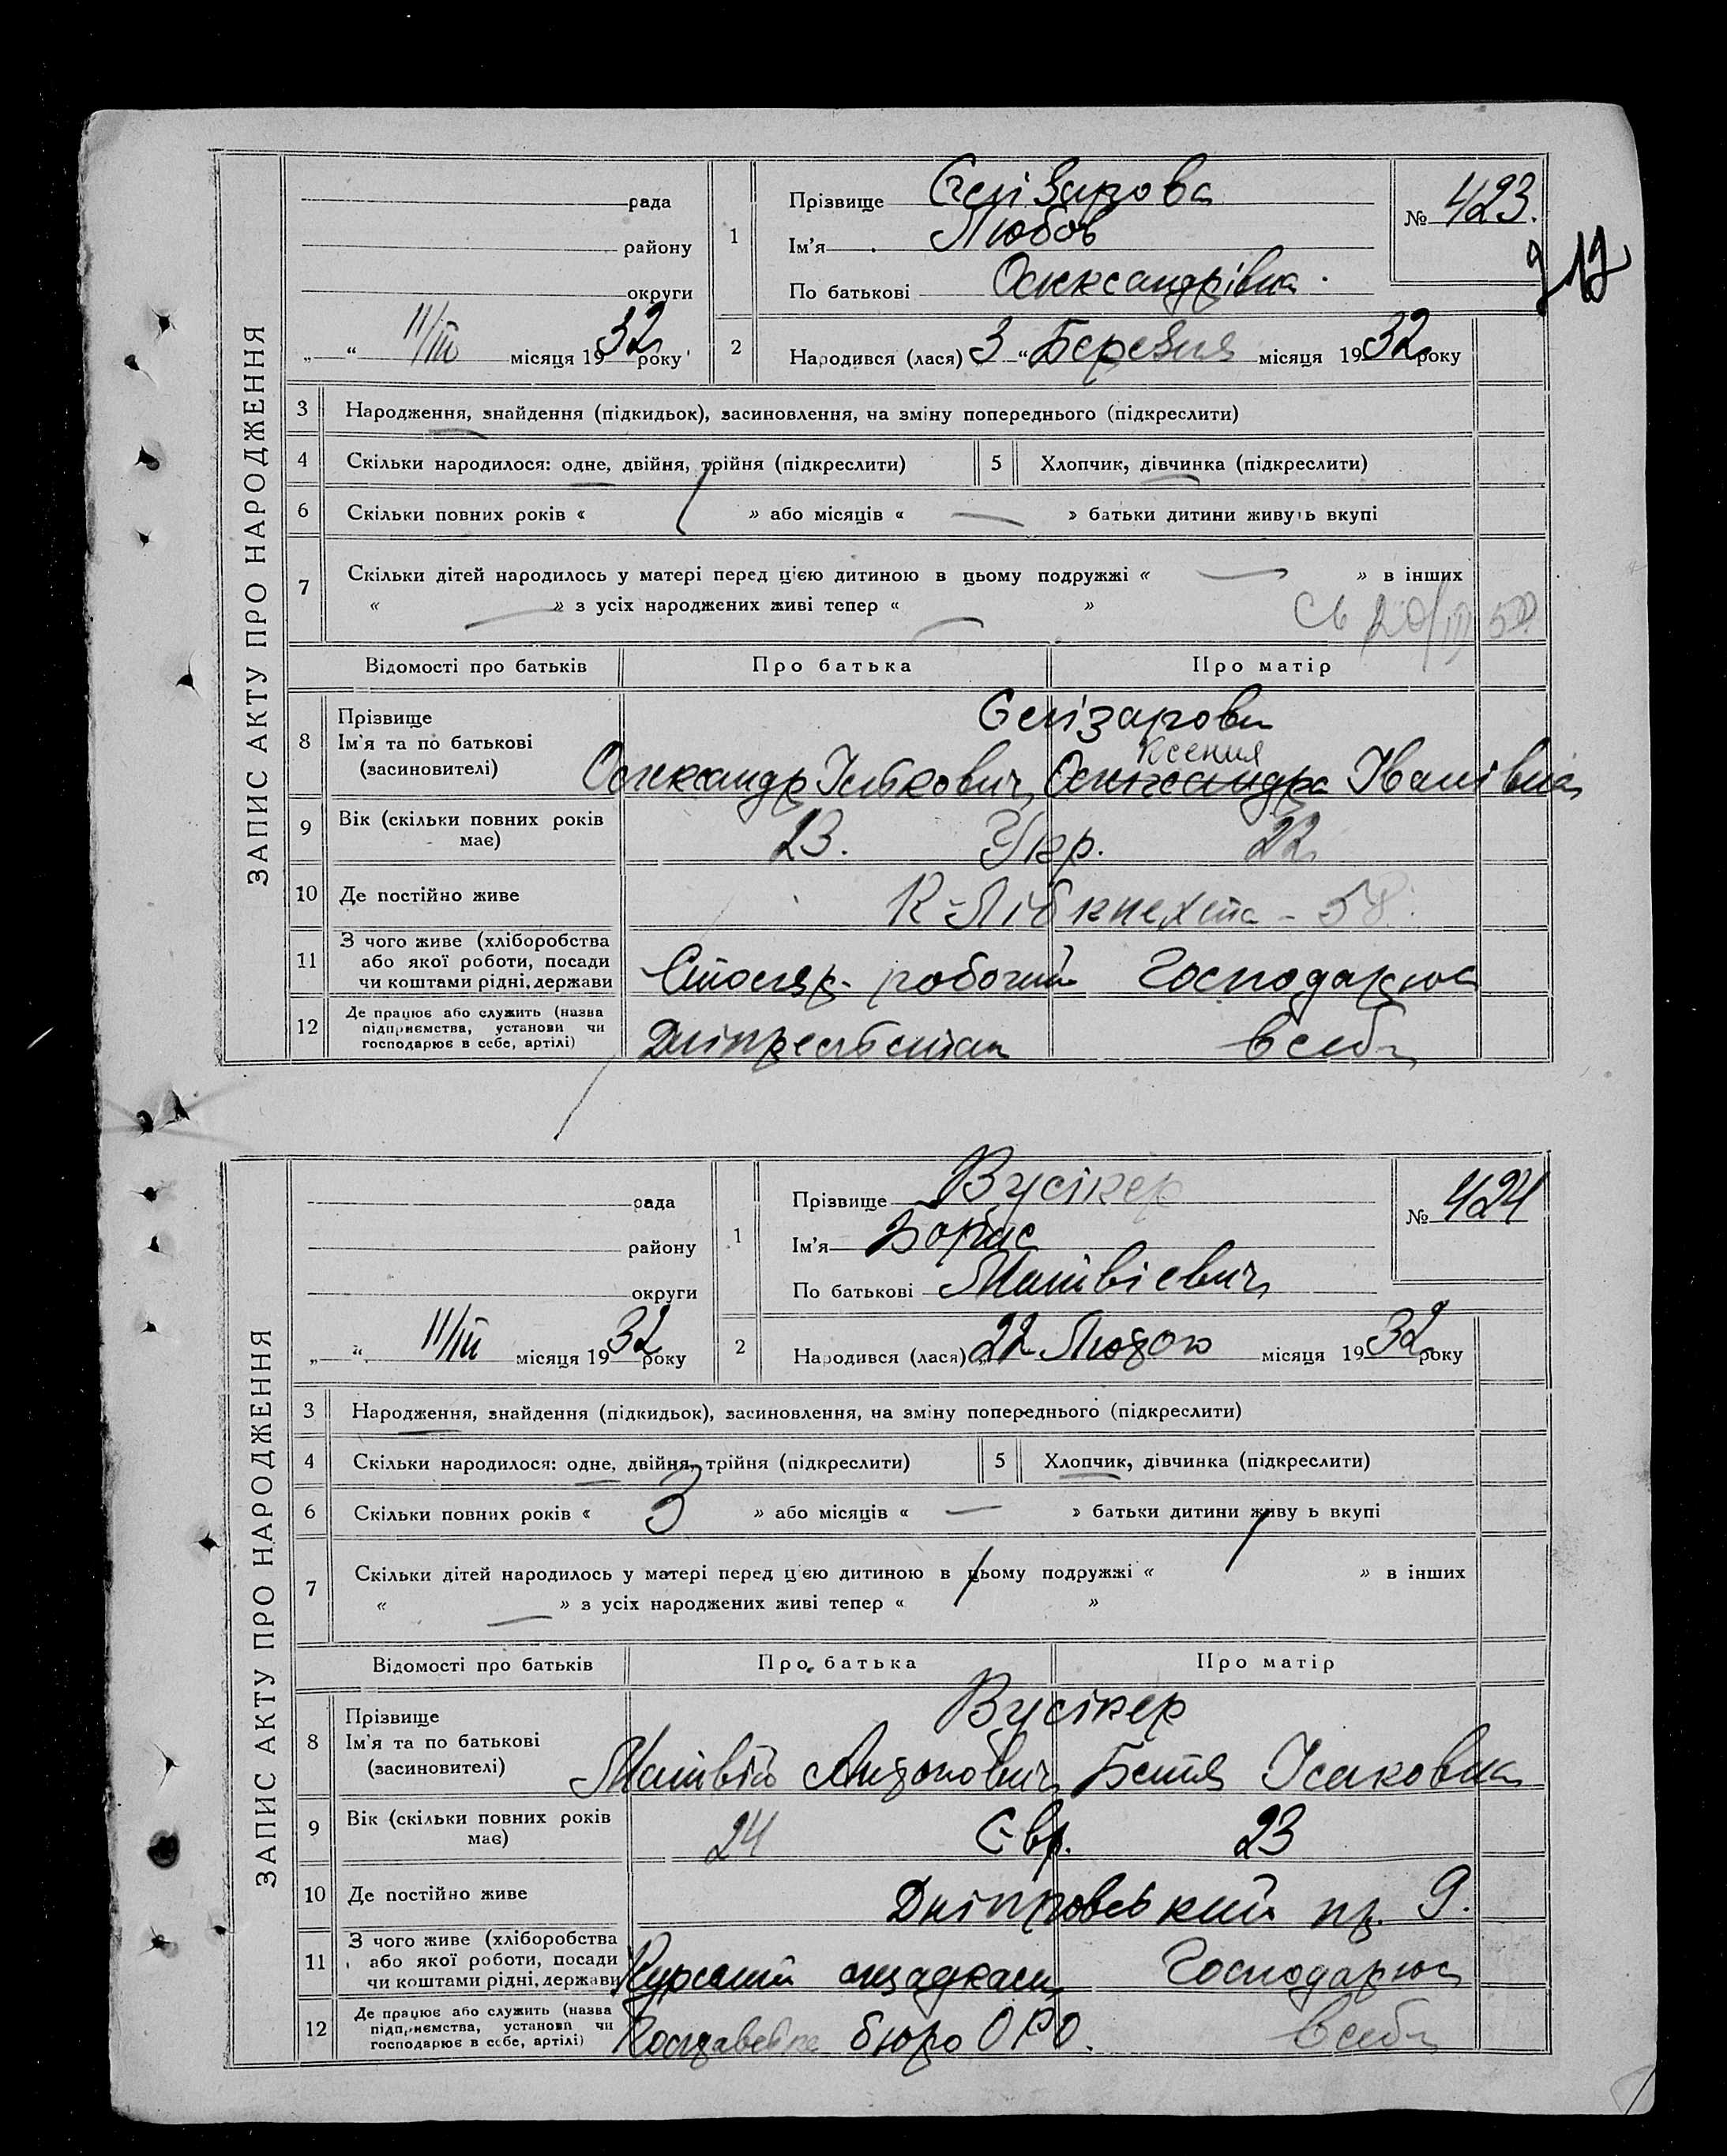 ЗАПИС АКТУ ПРО НАРОДЖЕННЯ
рада
району
округи
„ “ 11/III місяця 1932 року
1
Прізвище Єлізарова
Ім'я Любов
По батькові Олександрівна
№ 423.
2
Народився (лася) 3 “ Березня місяця 1932 року
3 Народження, знайдення (підкидьок), засиновлення, на зміну попереднього (підкреслити)
4 Скільки народилося: одне, двійня, трійня (підкреслити) 5 Хлопчик, дівчинка (підкреслити)
6 Скільки повних років « 1 » або місяців « — » батьки дитини живуть вкупі
7 Скільки дітей народилось у матері перед цією дитиною в цьому подружжі « — » в інших
« — » з усіх народжених живі тепер « — »
Відомості про батьків Про батька Про матір
8 Прізвище
Ім'я та по батькові
(засиновителі)
Єлізарови
Ксения
Олександр Олександра Іванівна
9 Вік (скільки повних років має) 23. Укр. 22
10 Де постійно живе К-Лібкнехта - 58.
11 З чого живе (хліборобства або якої роботи, посади чи коштами рідні, держави Столяр - робочий Господарює
12 Де працює або служить (назва підприємства, установи чи господарює в себе, артілі) в себе
ЗАПИС АКТУ ПРО НАРОДЖЕННЯ
рада
району
округи
„ “ 11/III місяця 1932 року
1
Прізвище Вусікер
Ім'я Борис
По батькові Матвієвич
№ 424
2
Народився (лася) „ 22 Лютого місяця 1932 року
3 Народження, знайдення (підкидьок), засиновлення, на зміну попереднього (підкреслити)
4 Скільки народилося: одне, двійня, трійня (підкреслити) 5 Хлопчик, дівчинка (підкреслити)
6 Скільки повних років « 3 » або місяців « — » батьки дитини живу ь вкупі
7 Скільки дітей народилось у матері перед цією дитиною в цьому подружжі « 1 » в інших
« — » з усіх народжених живі тепер « 1 »
Відомості про батьків Про батька Про матір
8 Прізвище
Ім'я та по батькові
(засиновителі)
Вусікер
Матвій Бетя Ісаковна
9 Вік (скільки повних років має) 24 Євр. 23
10 Де постійно живе Дніпровський пр. 9.
11 З чого живе (хліборобства або якої роботи, посади чи коштами рідні, держави ощадкаси Господарює
12 Де працює або служить (назва підприємства, установи чи господарює в себе, артілі) бюро в себе